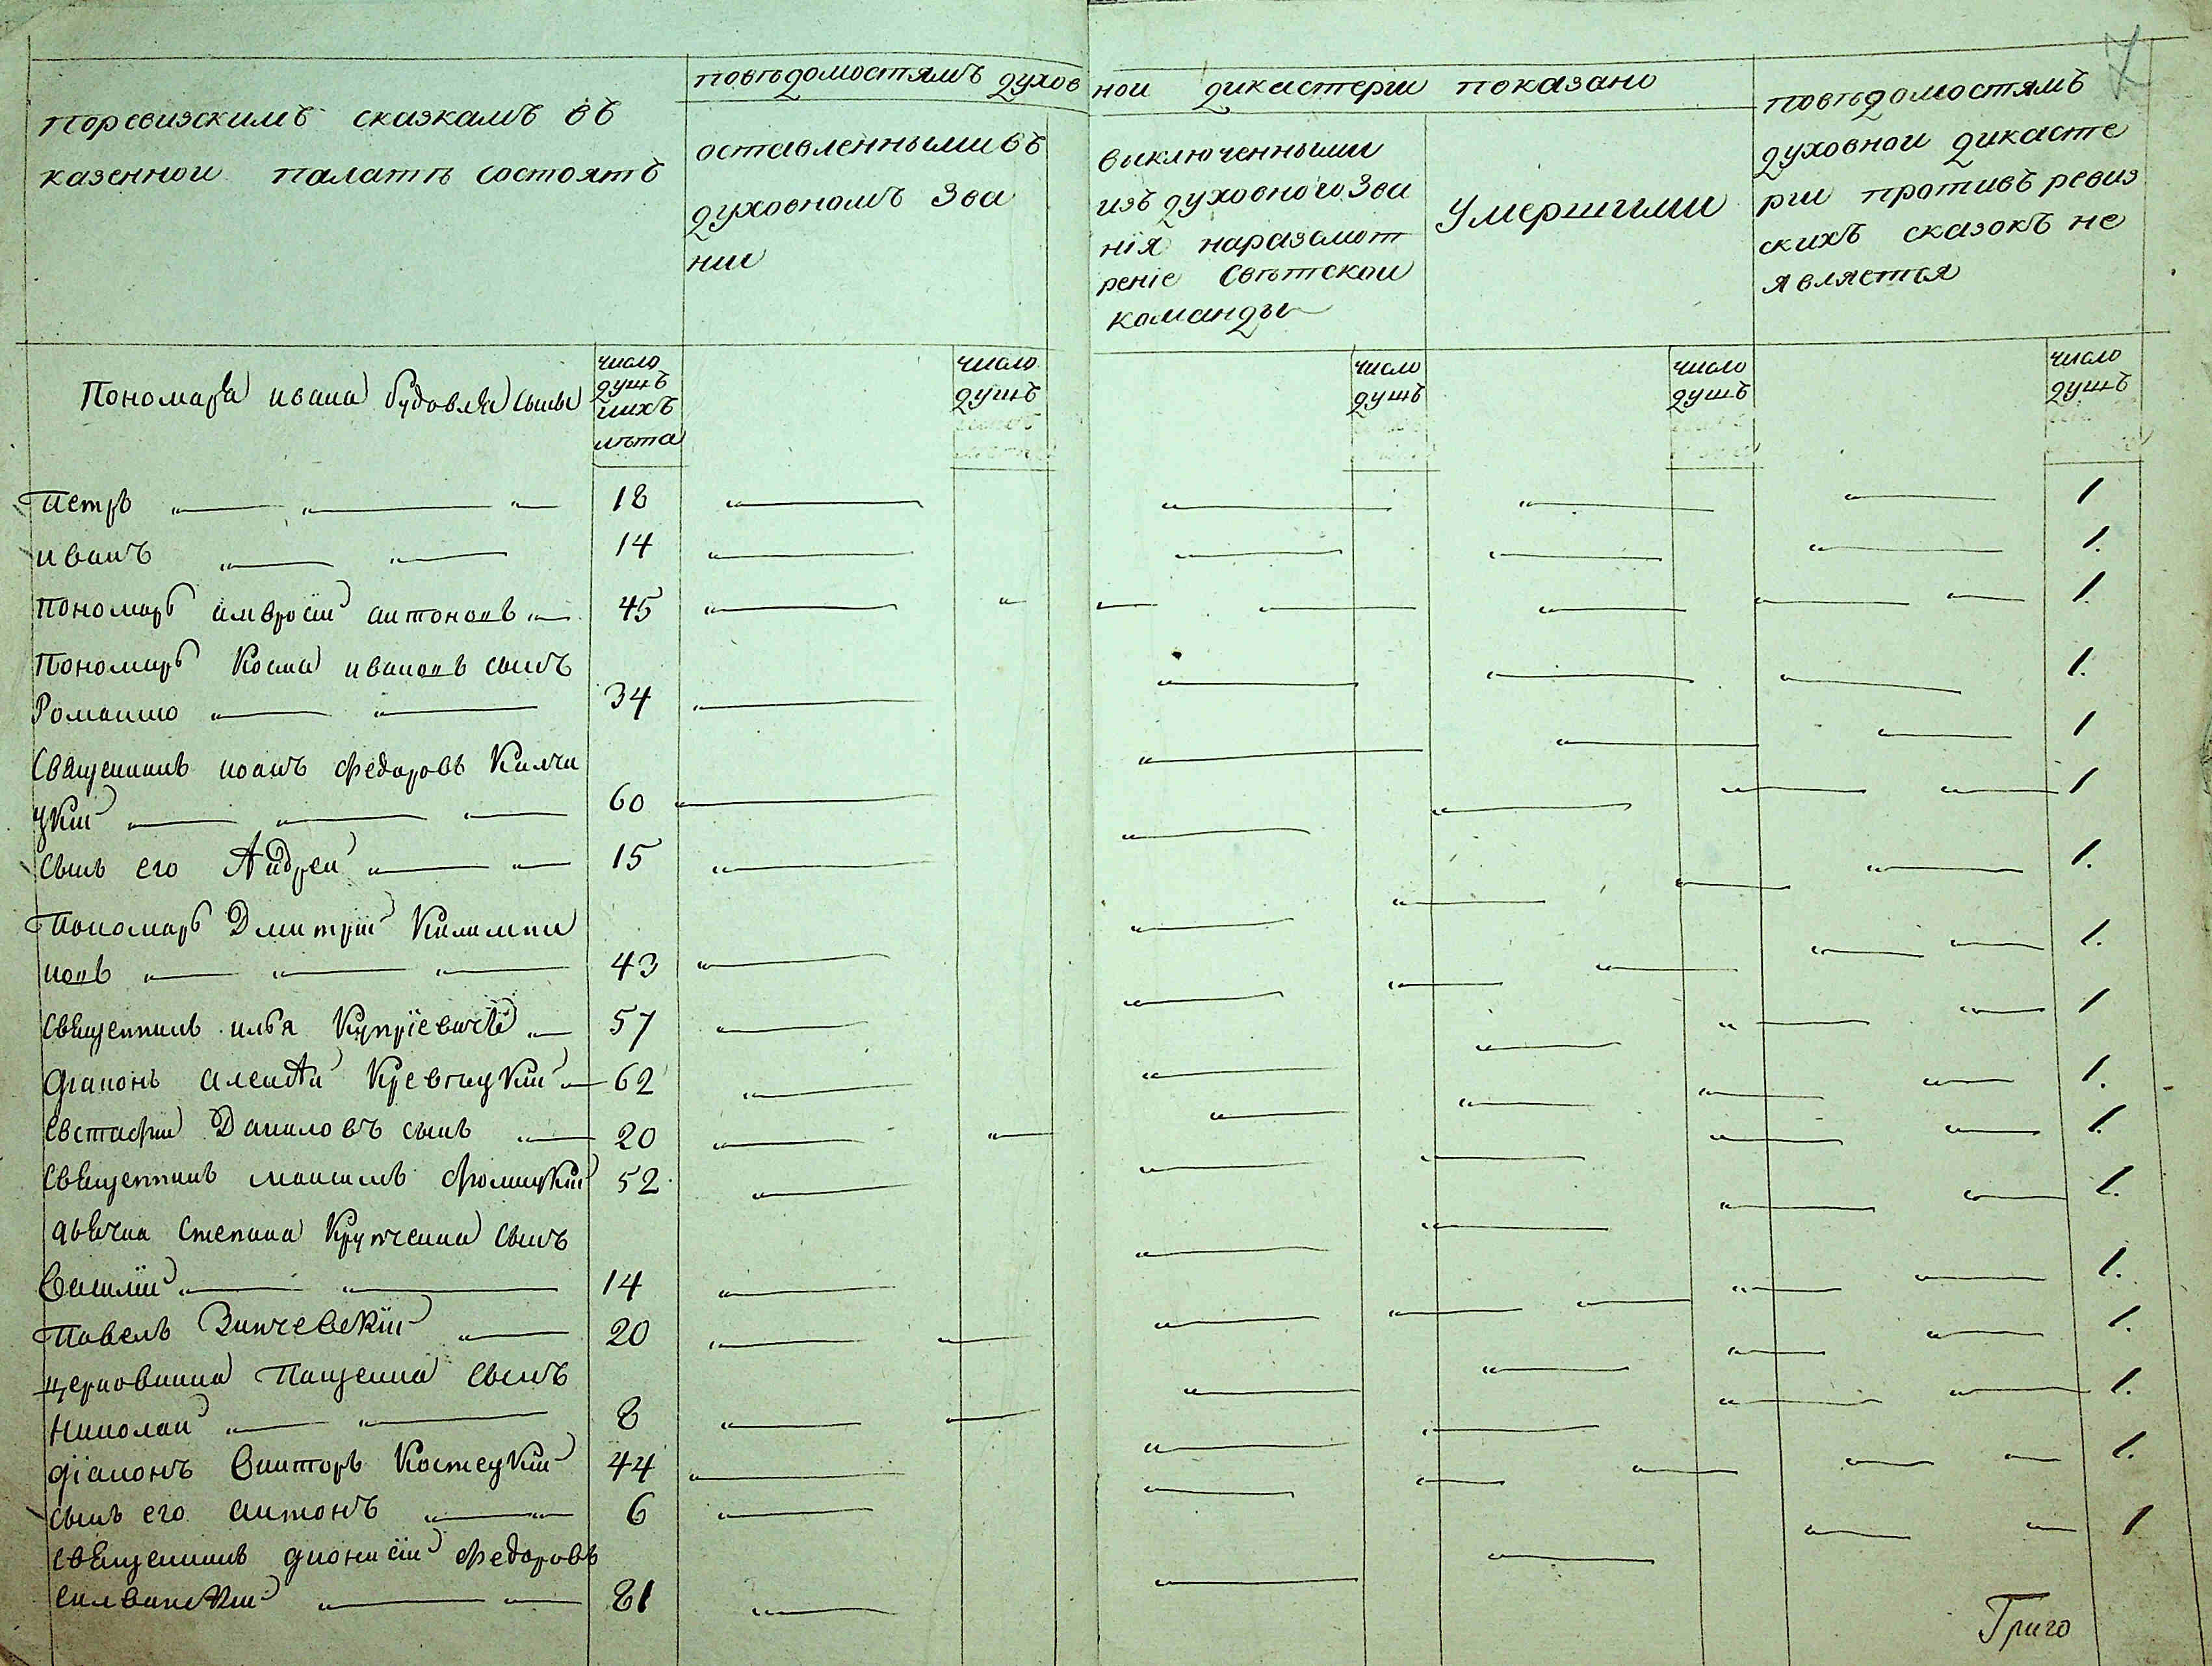 поревизскимъ сказкамъ въ
казенной палатѣ состоятъ
повѣдомостямъ духов
ной дикастеріи показано
оставленными въ
духовномъ Зва
нии
выключенными
изъ духовного Зва
нія наразсмот
реніе Свѣтской
команды
умершими
повѣдомостямъ
духовной дикасте
рии противъ ревиз
скихъ сказокъ не
является
число
душъ
ихъ
лѣта
число
душъ
число
душъ
число
душъ
число
душъ
Пономаря ивана сыны
Петръ 18 1
иванъ 14 1.
Пономарь амвросій антоновъ 45 1
Пономарь Косма ивановъ сынъ 1.
Романко 34 1
Священникъ иоанъ федоровъ Килчи
цкій 60 1
сынъ его Андрей 15 1.
Пономарь Дмитрій
новъ 43 1.
Священникъ илья Купріевичъ 57 1
діаконъ алексѣй 62 1.
Евстафій Даниловъ сынъ 20 1.
Священникъ максимъ 52 1.
дьячка Степана сынъ
Василій 14 1.
Павелъ Зинчевскій 20 1.
церковника Пащенка сынъ
Николай 8 1.
діаконъ Викторъ Костецкій 44 1.
сынъ его антонъ 6 1
Священникъ дионисій федоровъ
Силванскій 81
Григо